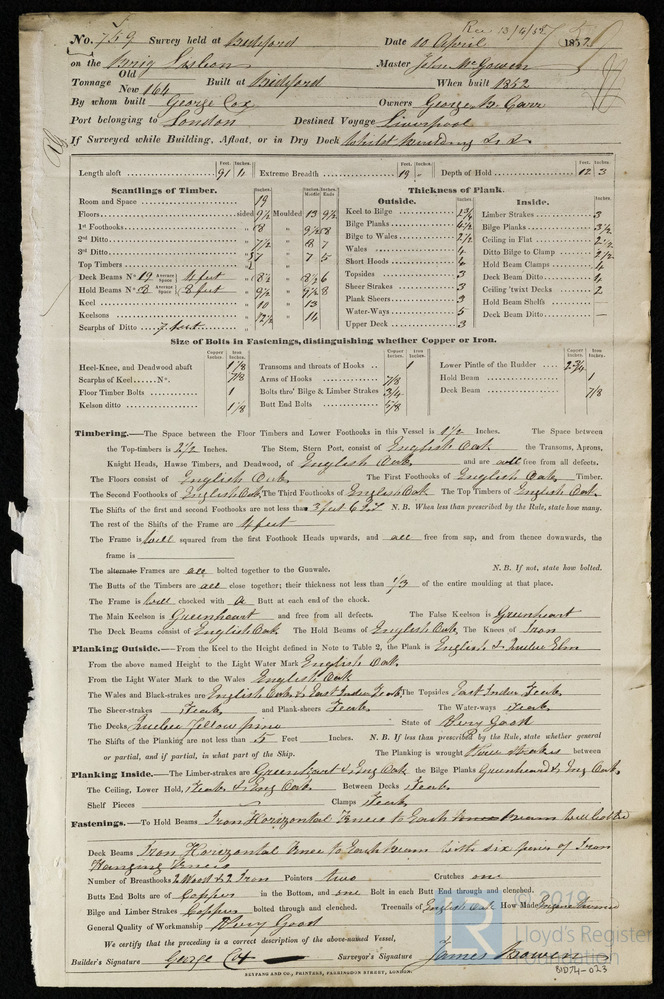 Rec 13/4/52
No. 759 Survey held at Bideford Date 10 April 1852
on the Brig Lisbon Master John McGowen
Tonnage Old New 164 Built at Bideford When built 1852
By whom built George Cox Owners George B. Carr
Port belonging to London Destined Voyage Liverpool
If Surveyed while Building, Afloat, or in Dry Dock Whilst Building
Feet. Inches. Feet. Inches. Feet. Inches.
Length aloft 91 11 Extreme Breadth 19 - Depth of Hold 12 3
Scantlings of Timber. Thickness of Plank.
Inches. Inches. Middle Inches. Ends Outside. Inches. Inside. Inches.
Room and Space 19 Keel to Bilge Limber Strakes 3
Floors sided 9½ Moulded 13 9½ Bilge Planks 4½ Bilge Planks 3½
1st Foothooks „ 8 „ 9½ 8 Bilge to Wales 2½ Ceiling in Flat 2½
2nd Ditto „ 7½ „ 8 7 Wales 4 Ditto Bilge to Clamp 2½
3rd Ditto „ 7 „ 7 5 Short Hoods 4 Hold Beam Clamps 4
Top Timbers Topsides 3 Deck Beam Ditto 4
Deck Beams No. 19 Average Space 4 feet „ 8½ „ 8½ 6 Sheer Strakes 3 Ceiling 'twixt Decks 2
Hold Beams No. 8 Average Space 8 feet „ 9½ „ 9½ 8 Plank Sheers 3 Hold Beam Shelfs
Keel „ 10 „ 13 Water-Ways 5 Deck Beam Ditto —
Keelsons „ 12½ „ 14 Upper Deck 3
Scarphs of Ditto 7 feet
Size of Bolts in Fastenings, distinguishing whether Copper or Iron.
Copper Inches. Iron Inches. Copper Inches. Iron Inches. Copper Inches. Iron Inches.
Heel-Knee, and Deadwood abaft 1 1/8 Transoms and throats of Hooks 1 Lower Pintle of the Rudder 2¾
Scarphs of Keel No. 7/8 Arms of Hooks 7/8 Hold Beam 1
Floor Timber Bolts 1 Bolts thro' Bilge & Limber Strakes 3/4 Deck Beam 7/8
Kelson ditto 1 1/8 Butt End Bolts 5/8
Timbering.—The Space between the Floor Timbers and Lower Foothooks in this Vessel is 1½ Inches. The Space between
the Top-timbers is 2½ Inches. The Stem, Stern Post, consist of English Oak the Transoms, Aprons,
Knight Heads, Hawse Timbers, and Deadwood, of English Oak and are well free from all defects.
The Floors consist of English Oak The First Foothooks of English Oak Timber.
The Second Foothooks of English Oak The Third Foothooks of English Oak The Top Timbers of English Oak
The Shifts of the first and second Foothooks are not less than 3 feet 6 In N. B. When less than prescribed by the Rule, state how many.
The rest of the Shifts of the Frame are 4 feet
The Frame is well squared from the first Foothook Heads upwards, and all free from sap, and from thence downwards, the
frame is
The alternate Frames are all bolted together to the Gunwale. N. B. If not, state how bolted.
The Butts of the Timbers are all close together; their thickness not less than 1/3 of the entire moulding at that place.
The Frame is well chocked with a Butt at each end of the chock.
The Main Keelson is Greenheart and free from all defects. The False Keelson is Greenheart
The Deck Beams consist of English Oak The Hold Beams of English Oak The Knees of Iron
Planking Outside.—From the Keel to the Height defined in Note to Table 2, the Plank is English & Quebec Elm
From the above named Height to the Light Water Mark English Oak
From the Light Water Mark to the Wales English Oak
The Wales and Black-strakes are English Oak & East India Teak The Topsides East India Teak
The Sheer-strakes Teak and Plank-sheers Teak The Water-ways Teak
The Decks Quebec Yellow pine State of Very Good
The Shifts of the Planking are not less than 5 Feet Inches. N. B. If less than prescribed by the Rule, state whether general
or partial, and if partial, in what part of the Ship. The Planking is wrought three strakes between
Planking Inside.—The Limber-strakes are Greenheart & Eng Oak the Bilge Planks Greenheart & Eng Oak
The Ceiling, Lower Hold, Teak & Eng Oak Between Decks Teak
Shelf Pieces Clamps Teak
Fastenings.—To Hold Beams Iron Horizontal Knees to Each Beam well bolted
Deck Beams Iron Horizontal Knee to Each Beam with six pairs of Iron
Hanging Knees
Number of Breasthooks 2 Wood & 2 Iron Pointers two Crutches one
Butts End Bolts are of Copper in the Bottom, and one Bolt in each Butt End through and clenched.
Bilge and Limber Strakes Copper bolted through and clenched. Treenails of English Oak How Made Engine turned
General Quality of Workmanship Very Good
We certify that the preceding is a correct description of the above-named Vessel,
Builder's Signature George Cox Surveyor's Signature James Bowen
SEYFANG AND CO., PRINTERS, FARRINGDON STREET, LONDON.
LR © 2019
Lloyd's Register
Foundation
BID74-023